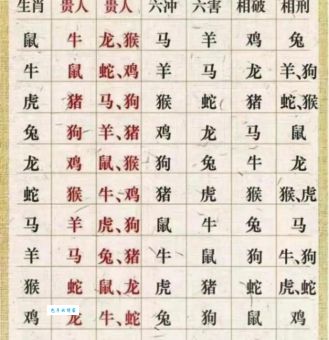 生肖 贵人 贵人 六冲 六害 相破 相刑
鼠 牛 龙、猴 马 羊 鸡 兔
牛 鼠 蛇、鸡 羊 马 龙 羊、狗
虎 猪 马、狗 猴 蛇 猪 蛇、猴
兔 狗 羊、猪 鸡 龙 马 鼠
龙 鸡 鼠、猴 狗 兔 牛 龙
蛇 猴 牛、鸡 猪 虎 猴 猴、虎
马 羊 虎、狗 鼠 牛 兔 马
羊 马 兔、猪 牛 鼠 狗 牛、狗
猴 蛇 鼠、龙 虎 猪 蛇 虎、蛇
鸡 龙 牛、蛇 兔 狗 鼠 鸡